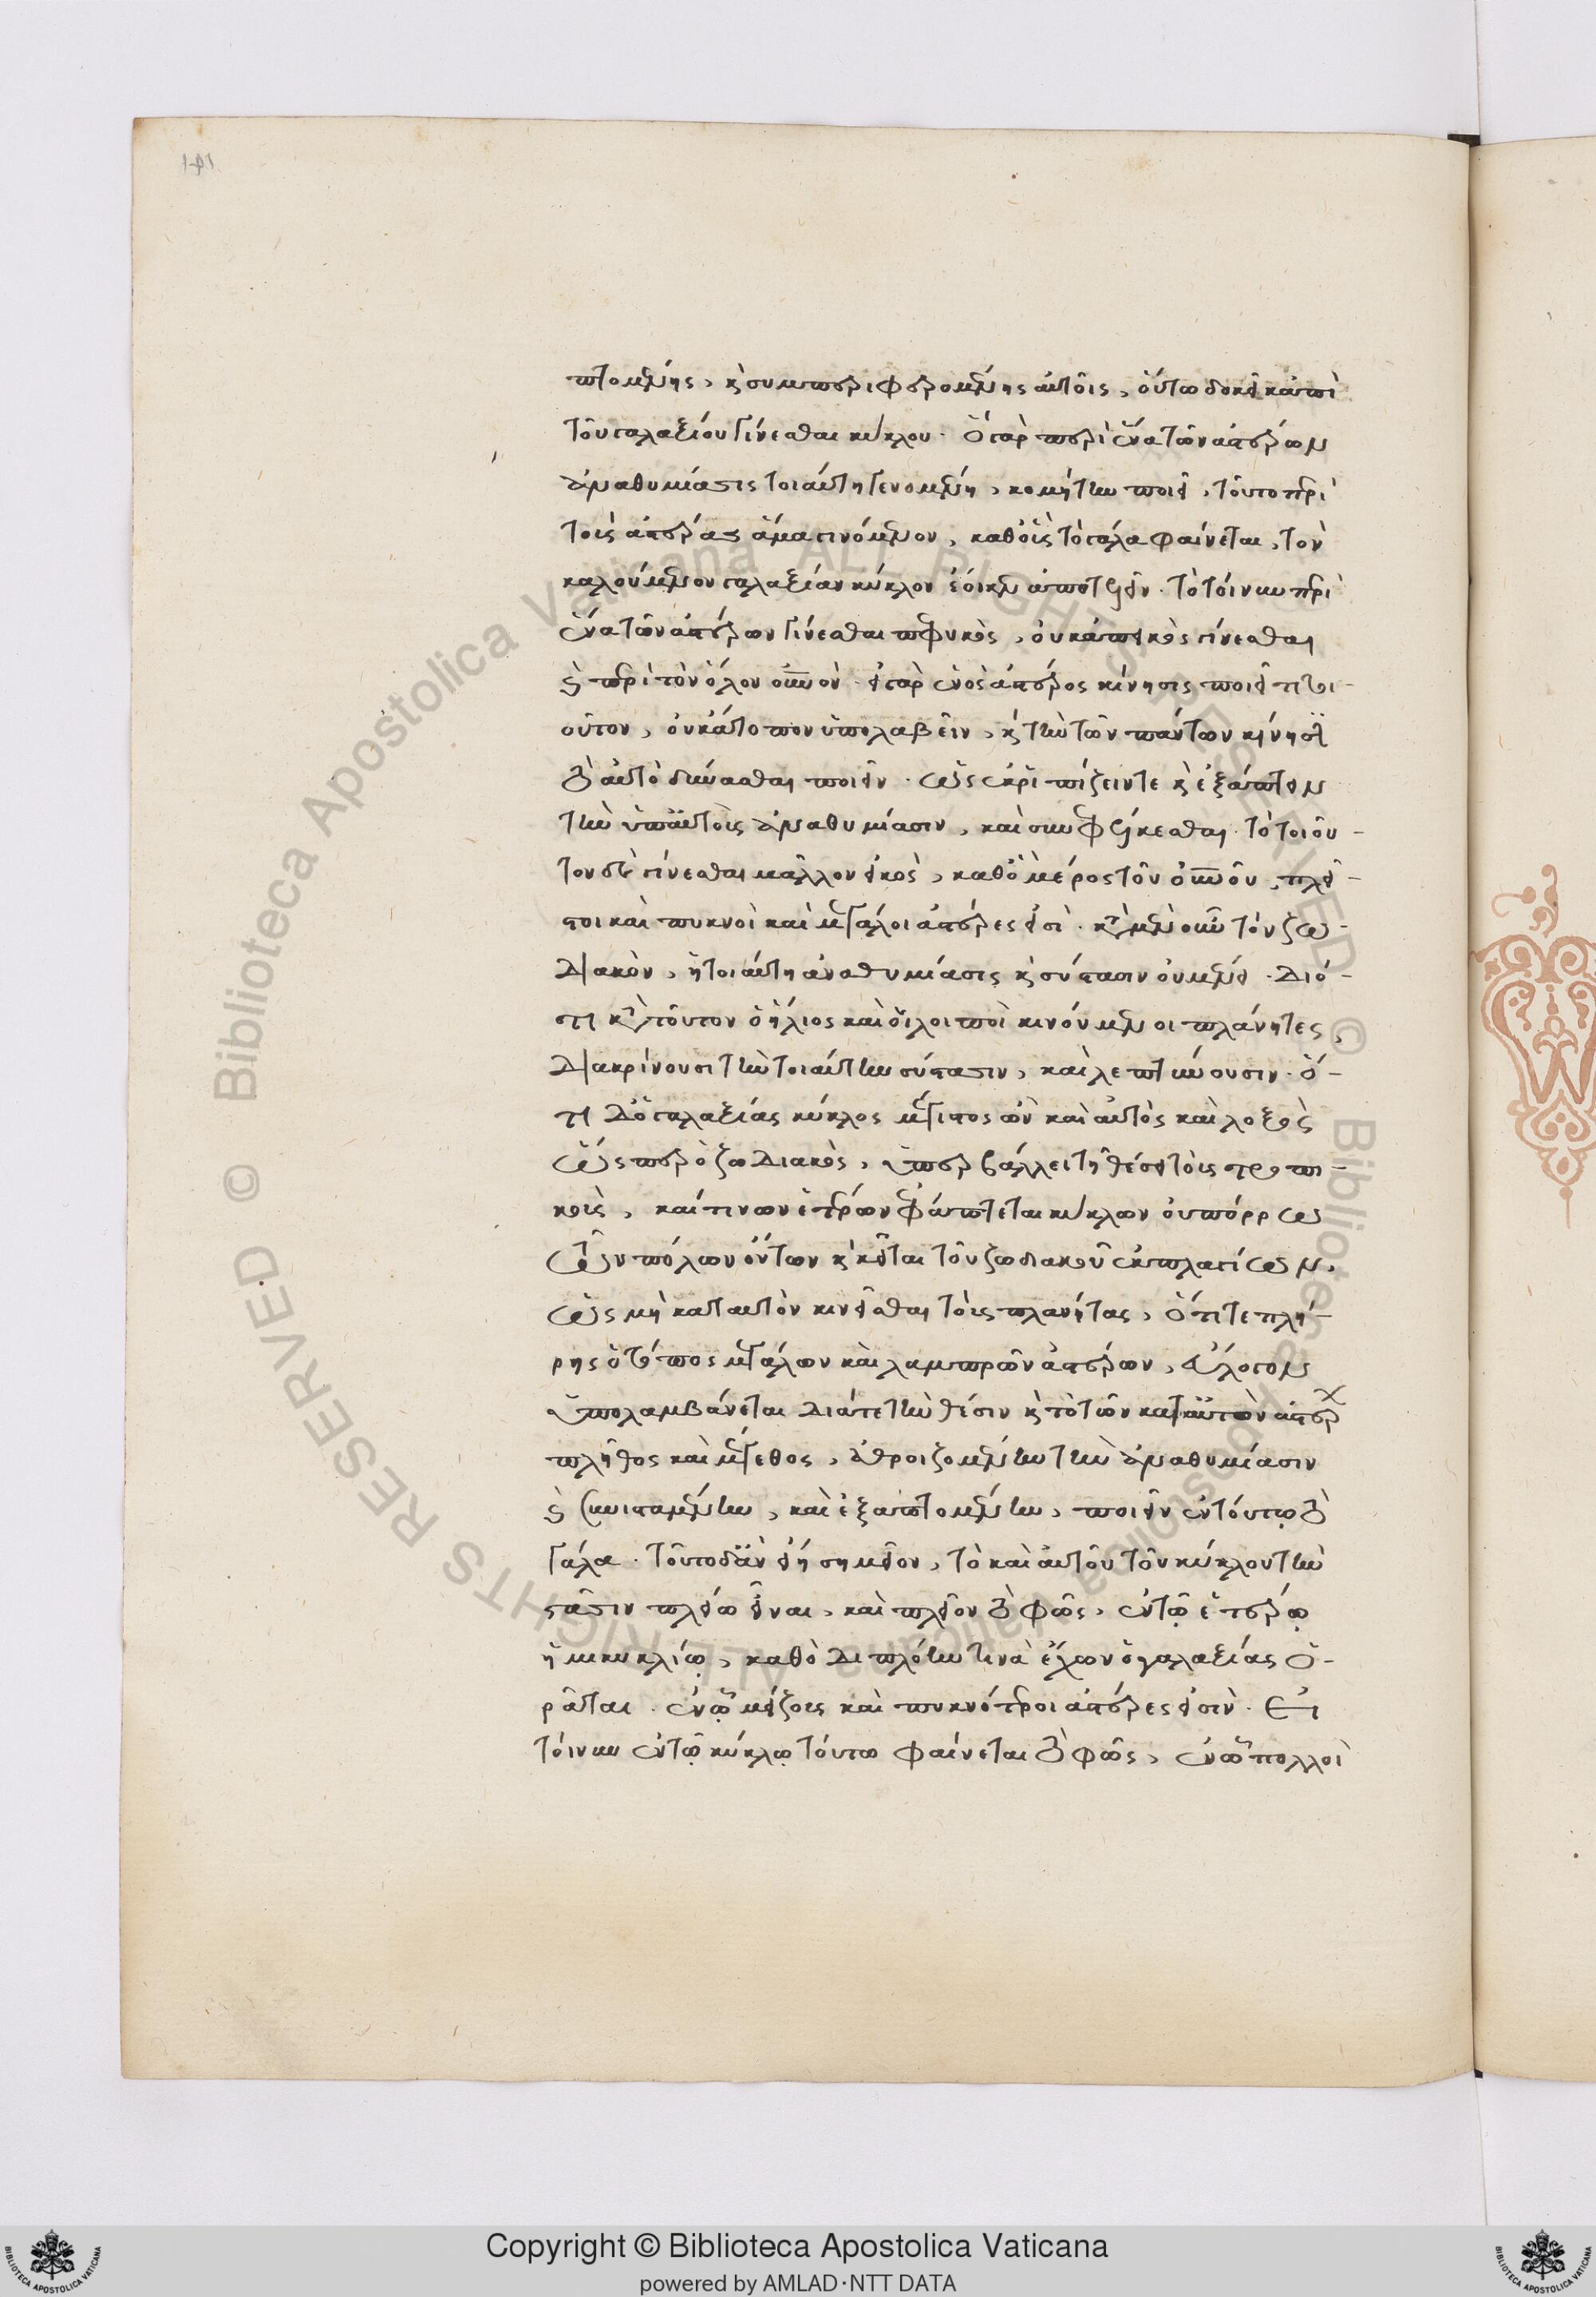 141
πτομένης, καὶ συμπεριφερομένης αὐτοῖς, οὕτω δοκεῖ κἀπὶ
τοῦ γαλαξίου γίνεσθαι κύκλου. ὃ γὰρ περὶ ἕνα τῶν ἀστέρων
ἀναθυμίασις τοιαύτη γενομένη, κομήτην ποιεῖ, τοῦτο περὶ
τοὺς ἀστέρας ἅμα γινόμενον, καθ' οὓς τὸ γάλα φαίνεται, τὸν
καλούμενον γαλαξίαν κύκλον ἔοικεν ἀποτελεῖν. τὸ τοίνυν περὶ
ἕνα τῶν ἀστέρων γίνεσθαι πεφυκὸς, οὐκ ἀπεικὸς γίνεσθαι
καὶ περὶ τὸν ὅλον οὐνὸν. εἰ γὰρ ἑνὸς ἀστέρος κίνησις ποιεῖ τι τοι-
οῦτον, οὐκ ἄτοπον ὑπολαβεῖν, καὶ τὴν τῶν πάντων κίνησιν
τὸ αὐτὸ δύνασθαι ποιεῖν. ὡς ἐκριπίζειν τε καὶ ἐξάπτειν
τὴν ὑπ' αὐτοῖς ἀναθυμίασιν, καὶ συνεφέλκεσθαι. τὸ τοιοῦ-
τον δὲ γίνεσθαι μᾶλλον εἰκὸς, καθ' ὃ μέρος τοῦ οὐνοῦ, πλεῖ-
στοι καὶ πυκνοὶ καὶ μεγάλοι ἀστέρες εἰσὶ. κατὰ μὲν οὖν τὸν ζω-
διακὸν, ἡ τοιαύτη ἀναθυμίασις καὶ σύστασιν οὐ μένει. διό-
τι κατὰ τοῦτον ὁ ἥλιος καὶ οἱ λοιποὶ κινούμενοι πλάνητες,
διακρίνουσι τὴν τοιαύτην σύστασιν, καὶ λεπτύνουσιν. ὅ-
τι δὲ ὁ γαλαξίας κύκλος μέγιστος ὢν καὶ αὐτὸς καὶ λοξὸς
ὥσπερ ὁ ζωδιακὸς, ὑπερβάλλει τῇ θέσει τοὺς τροπι-
κοὺς, καί τινων ἑτέρων ἐφάπτεται κύκλων οὐ πόρρω
τῶν πόλων ὄντων καὶ κεῖται τοῦ ζωδιακοῦ ἐκ πλαγίων,
ὡς μὴ κατ' αὐτὸν κινεῖσθαι τοὺς πλανήτας, ὅτι τε πλή-
ρης ὁ τόπος μεγάλων καὶ λαμπρῶν ἀστέρων, εὔλογον
ὑπολαμβάνεται διά τε τὴν θέσιν καὶ τὸ τῶν κατ' αὐτὸν ἀστέρ
πλῆθος καὶ μέγεθος, ἀθροιζομένην τὴν ἀναθυμίασιν
καὶ συνισταμένην, καὶ ἐξαπτομένην, ποιεῖν ἐν τούτῳ τὸ
γάλα. τοῦτο δ' ἂν εἴη σημεῖον, τὸ καὶ αὐτοῦ τοῦ κύκλου τὴν
στᾶσιν πλείω εἶναι, καὶ πλεῖον τὸ φῶς, ἐν τῷ ἑτέρῳ
ἡμικυκλίῳ, καθὸ διπλόην τινὰ ἔχων ὁ γαλαξίας ὁ-
ρᾶται. ἐν ᾧ μείζους καὶ πυκνότεροι ἀστέρες εἰσὶν. Εἰ
τοίνυν ἐν τῷ κύκλῳ τούτω φαίνεται τὸ φῶς, ἐν ᾧ πολλοὶ
© Biblioteca Apostolica Vaticana ALL RIGHTS RESERVED
© Biblioteca Apostolica Vaticana ALL RIGHTS RESERVED
Copyright © Biblioteca Apostolica Vaticana
powered by AMLAD·NTT DATA
BIBLIOTECA APOSTOLICA VATICANA
BIBLIOTECA APOSTOLICA VATICANA